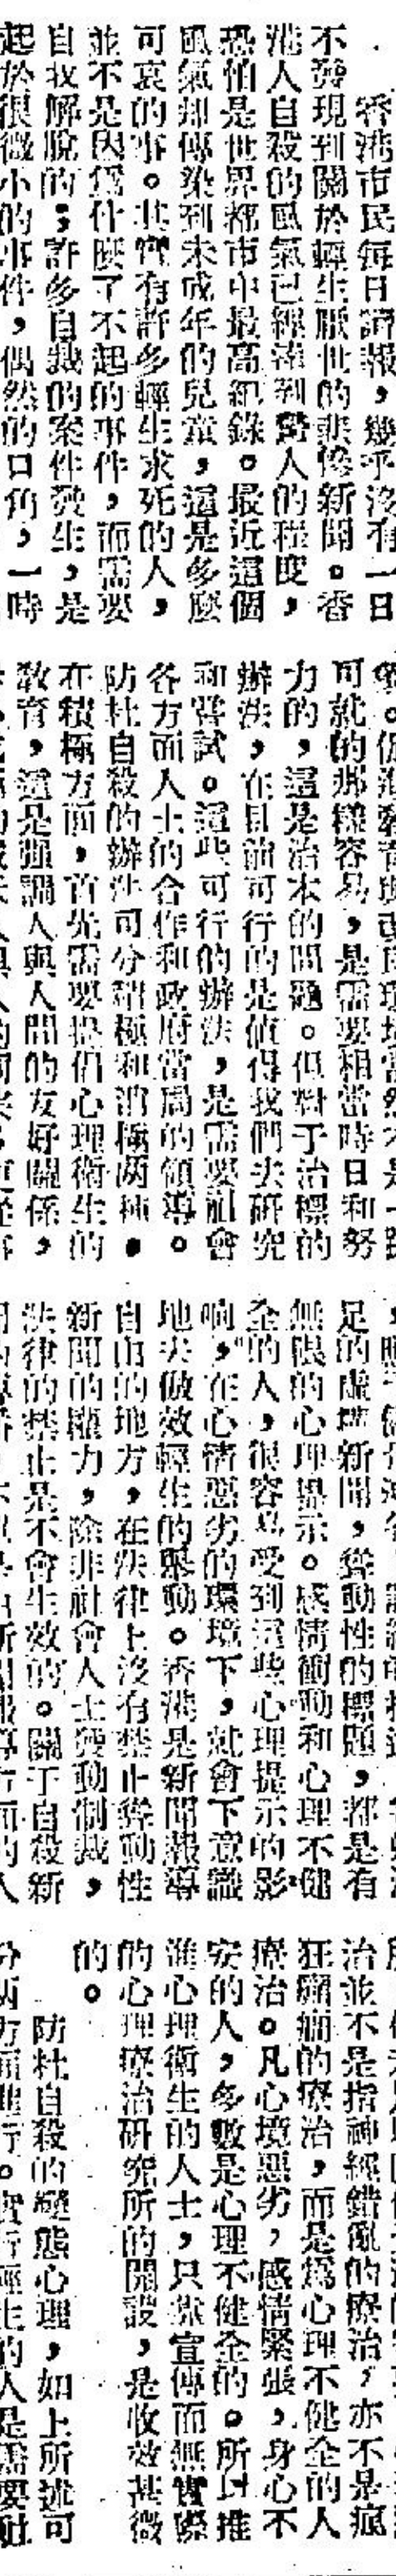 香港市民每日讀報，幾乎沒有一日
不發現到關於輕生厭世的悲慘新聞。香
港人自殺的風氣已經達到驚人的程度，
恐怕是世界都市中最高紀錄。最近這個
風氣却傳染到未成年的兒童，這是多麼
可哀的事。其實有許多輕生求死的人，
並不是因爲什麼了不起的事件，而需要
自我解脫的；許多自殺的案件發生，是
起於很微小的事件，偶然的口角，一時
可就的那樣容易，是需要相當時日和努
力的，這是治本的問題。但對于治標的
辦法，在目前可行的是值得我們去研究
和嘗試。這些可行的辦法，是需要社會
各方面人士的合作和政府當局的領導。
防杜自殺的辦法可分積極和消極兩種。
在積極方面，首先需要提倡心理衛生的
教育，這是強調人與人間的友好關係，
足的虛構新聞，聳動性的標題，都是有
無限的心理提示。感情衝動和心理不健
全的人，很容易受到這些心理提示的影
响，在心情惡劣的環境下，就會下意識
地去倣效輕生的舉動。香港是新聞報導
自由的地方，在法律上沒有禁止聳動性
新聞的權力，除非社會人士發動制裁，
法律的禁止是不會生效的。關于自殺新
治並不是指神經錯亂的療治，亦不是瘋
狂癲癇的療治，而是爲心理不健全的人
療治。凡心境惡劣，感情緊張，身心不
安的人，多數是心理不健全的。所以推
進心理衛生的人士，只靠宣傳而無實際
的心理療治研究所的開設，是收效甚微
的。
防杜自殺的變態心理，如上所述可
分兩方面進行。實行輕生的人是需要